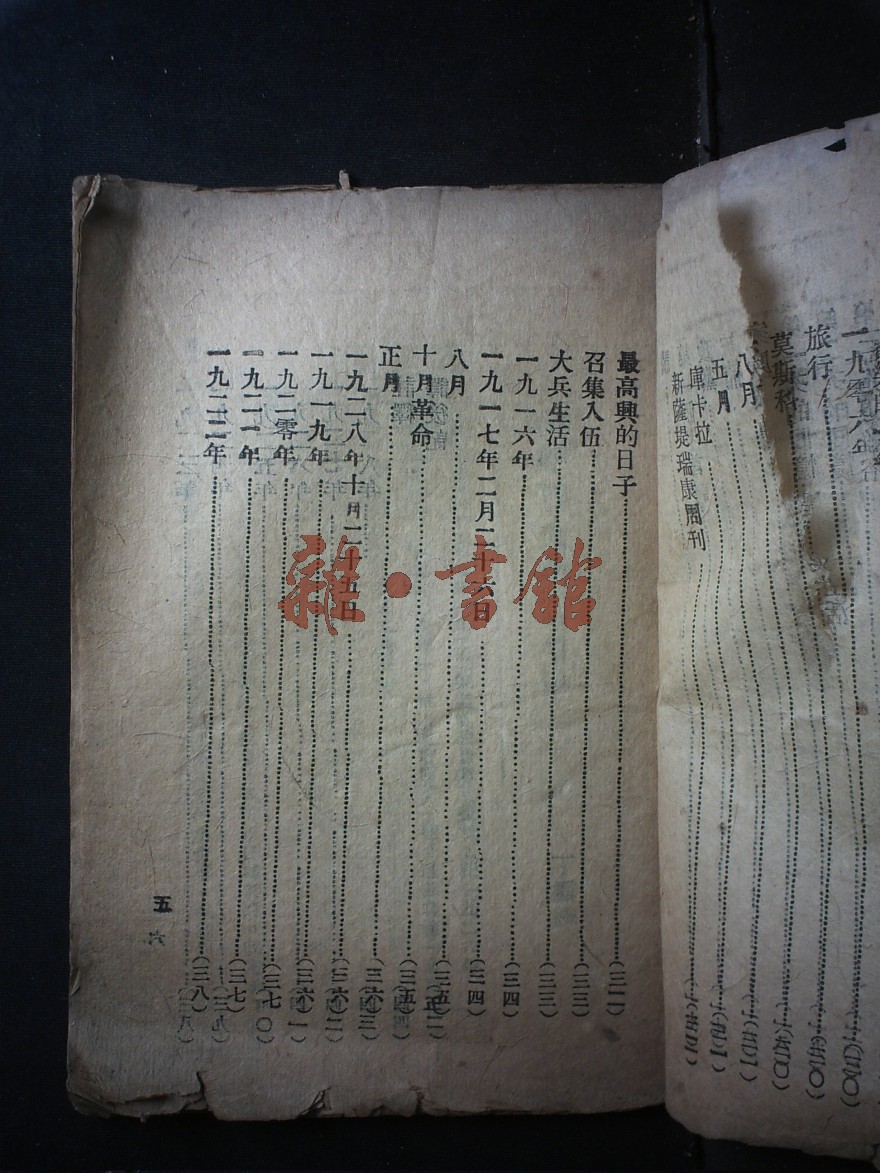 一九零六年
旅行
莫斯科
八月
五月
庫卡拉
新薩堤瑞康周刊
最高興的日子……(三一)
召集入伍……(三三)
大兵生活……(三三)
一九一六年……(三四)
一九一七年二月二十六日……(三四)
八月……(三五)
十月革命……(三五)
正月……(三六)
一九二八年十月二十五日……(三六)
一九一九年……(三六)
一九二零年……(三七)
一九二一年……(三七)
一九二二年……(三八)
五
雜·書館